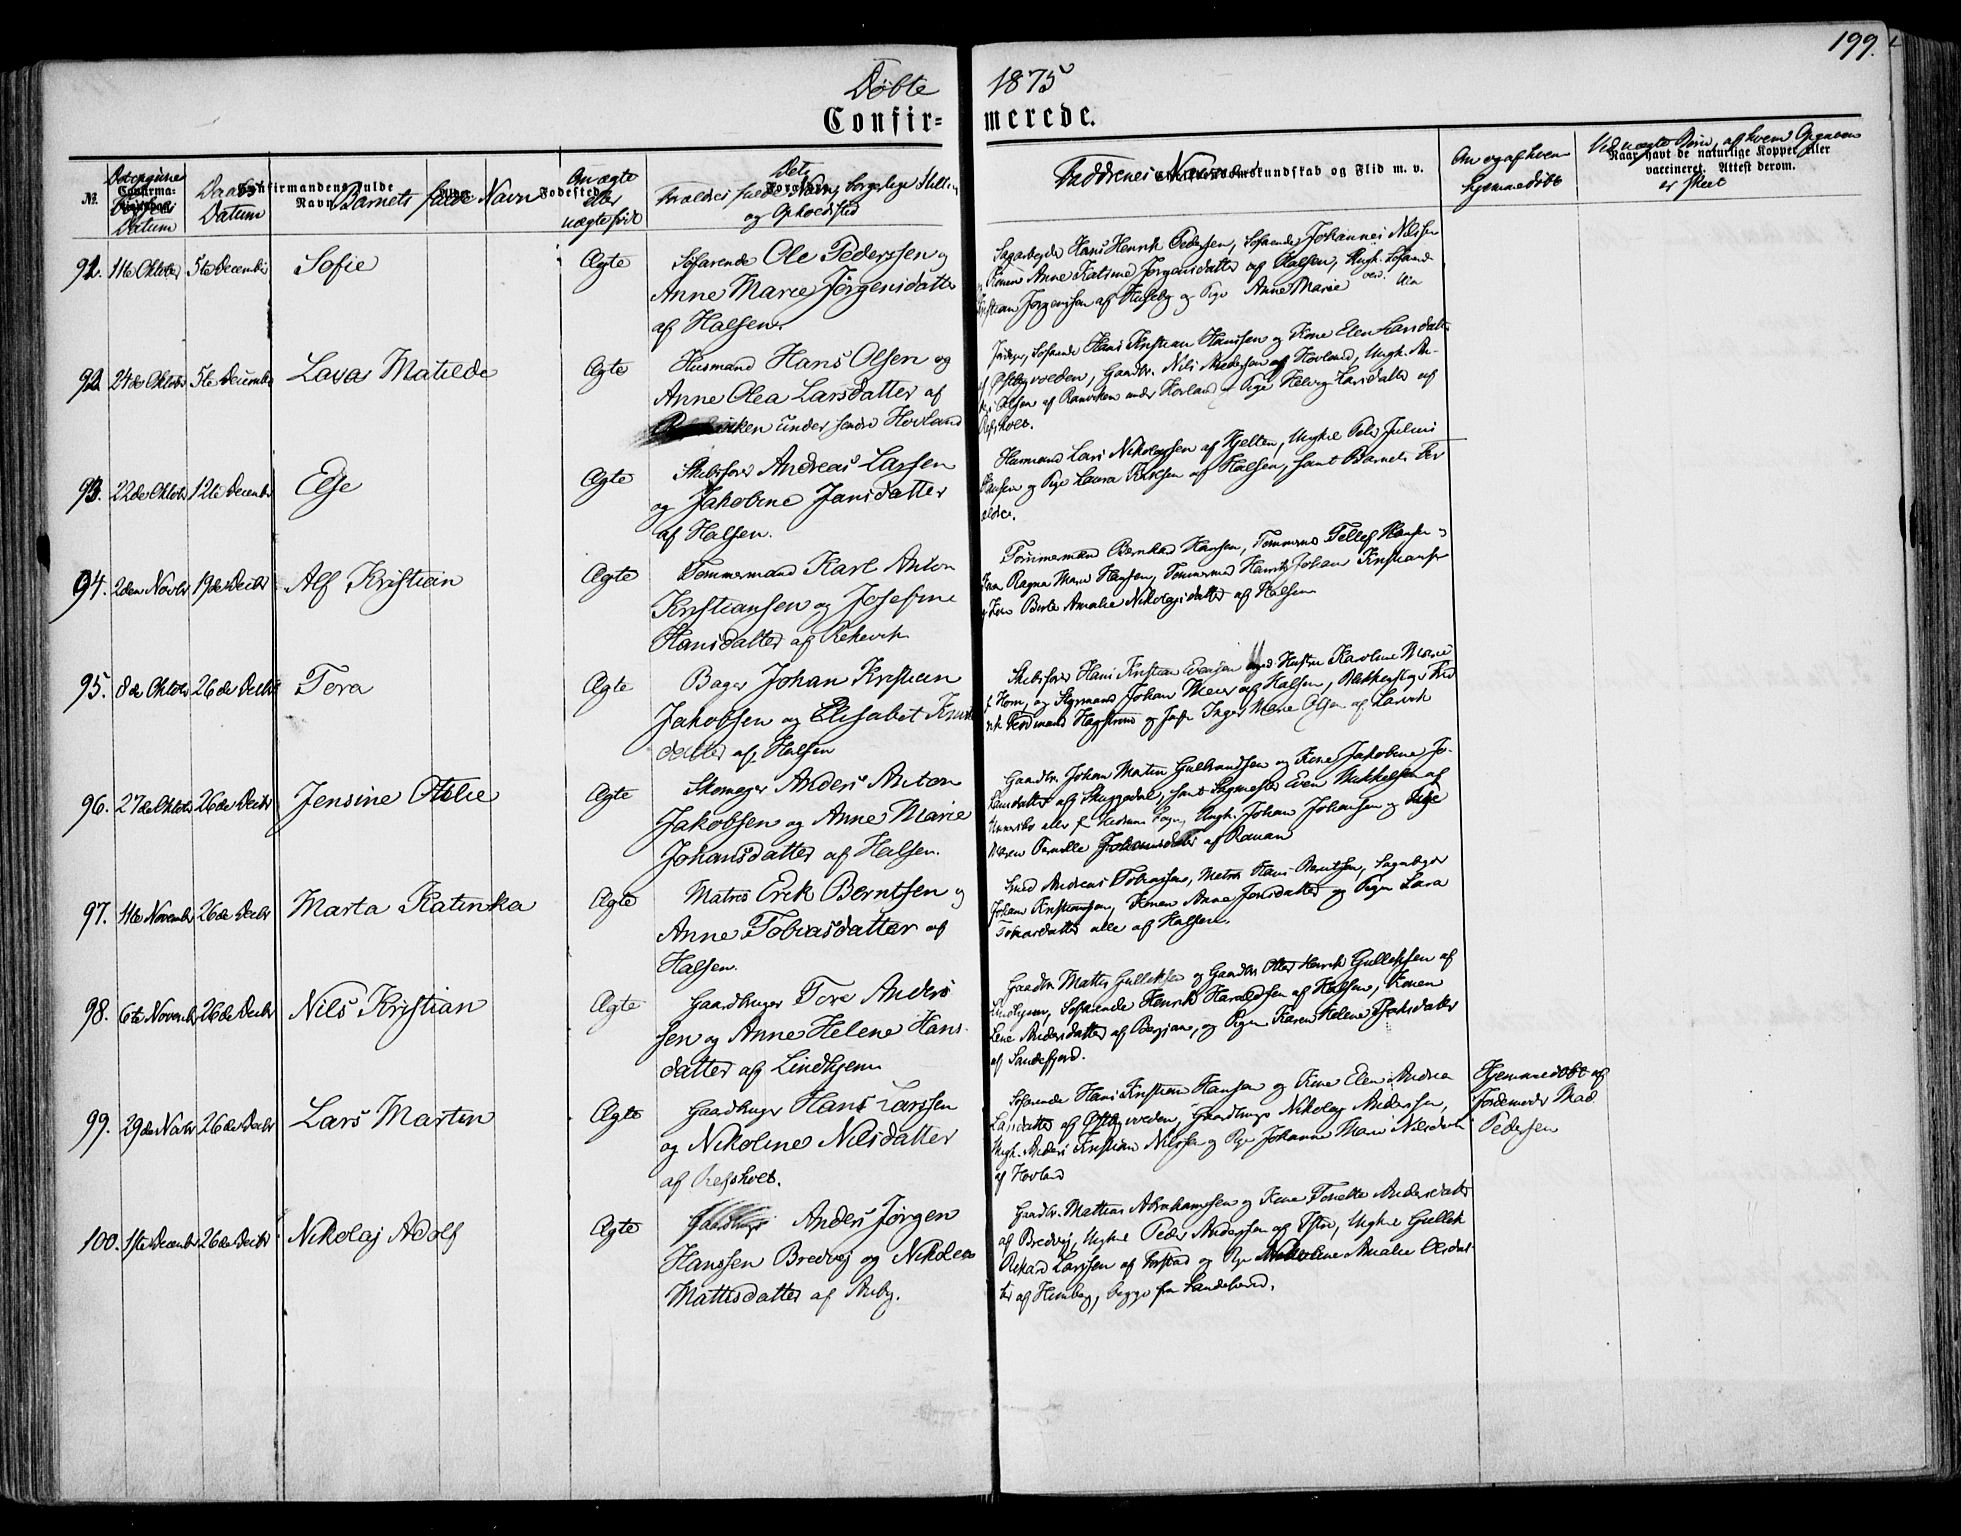 199.
Døbte 1875
Confir= merede.
No.
Datum
Daabs Datum
Barnets fulde Navn
Om ægte eller uægte født
Forældres fulde Navn, borgerlige Stilling og Opholdsted
Faddernes Navne
Om og af hvem hjemmedøbt
91. 11te Oktober 5te December Sofie Ægte Søfarende Ole Pederssen og
Anne Marie Jørgensdatter
af Halsen
Sagarbeyder Hans Henrik Pedersen, Søfarende Johannes Nilssen
Konen Anne Katrine Jørgensdatter af Halsen, Ungk. Søfarende
Kristian Jørgensen af Huseby og Pige Anne Marie
92. 24de Oktober 5te December Lava Matilde Ægte Husmand Hans Olsen og
Anne Olea Larsdatter af
under søndre Hovland
Søfarende Hans Kristian Hanssen og Kone Elen Larsdatter
af Østbyveden, Gaardbr. Nils Andersen af Hovland, Ungk. An-
Olsen af Ranviken under Hovland og Pige Helvig Larsdatter af
Refsholt.
93. 22de Oktober 12te December Else Ægte Skibsfører Andreas Larsen
og Jakobine Jansdatter
af Halsen.
Husmand Lars Nikolajsen af Hjelten, Ungkl Peter Julius
Hansen og Pige Laura Karlsen af Halsen, samt Barnets For
ældre.
94. 2den Novbr 19de Decbr Alf Kristian Ægte Tømmermand Karl Anton
Kristiansen og Josefine
Hansdatter af Rekevik
Tømmermand Bernhard Hansen, Tømmermd Tellef Hansen og
Kone Ragna Marie Hansen, Tømmermd Henrik Johan Kristiansen
og Kone Berte Amalie Nikolajsdatter af Halsen
95. 8de Oktober 26de Decbr Tora Ægte Bager Johan Kristian
Jakobsen og Elisabet Knuds
datter af Halsen
Skibsfører Hans Kristian Evensen med Hustru Karoline Marie
f. Horn, og Styrmand Johan Meier af Halsen, Blikkenslager Fred
rik Ferdinand Hegstrøm og Jfr Inger Marie Olsen af Larvik
96. 27de Oktober 26de Decbr Jensine Otilie Ægte Skomager Anders Anton
Jakobsen og Anne Marie
Johansdatter af Halsen.
Gaardbr. Johan Martin Gulbrandsen og Kone Jakobine Jo-
hansdatter af Skuggedal, samt Sagmester Even Mikkelsen af
alle fra Hedrum Sogn, Ungk. Johan Johansen og Pige
Maren Pernille Johannesdatter af Rauan
97. 11te November 26de Decbr Marta Katinka Ægte Matros Erik Berntsen og
Anne Tobiasdatter af
Halsen.
Smed Andreas Tobiassen, Matros Hans Berntsen, Sagarbeyder
Johan Kristiansen, Konen Anne Jonsdatter og Pigen Lava
Tobiasdatter alle af Halsen.
98. 6te November 26de Decbr Nils Kristian Ægte Gaardbruger Tore Anders
sen og Anne Helene Hans-
datter af Lindhjem
Gaardbr. Mattis Gulleksen og Gaardbr Henrik Gulleksen af
Lindhjem, Søfarende Henrik Haraldsen af Halsen, Konen
Lene Andersdatter af Bergian, og Pigen Karen Helene Isaksdatter
af Sandefjord.
99. 29de Novbr 26de Decbr Lars Martin Ægte Gaardbruger Hans Larssen
og Nikoline Nilsdatter
af Refsholt.
Søfarende Hans Kristian Hansen og Kone Elen Andrea
Larsdatter af Østbyveden, Gaardbruger Nikolaj Anderssen,
Ungk. Anders Kristian Nilssen og Pige Johanne Marie Nilsdatter
af Hovland
Hjemmedøbt af
Jordemoder Mad
Pedersen
100. 1ste December 26de Decbr Nikolaj Adolf Ægte Gaardbruger Anders Jørgen
Hanssen Bredvej og Nikolea
Mattisdatter af Auby.
Gaardbr. Mathias Abrahamssen og Kone Tonette Andersdatter
af Bredvej, Ungkl Peder Anderssen af Istre, Ungkl Gullik
Rikard Larssen af Forstad og Pige Nikoline Amalie Olsdat-
ter af Himberg, begge fra Sandeherred.